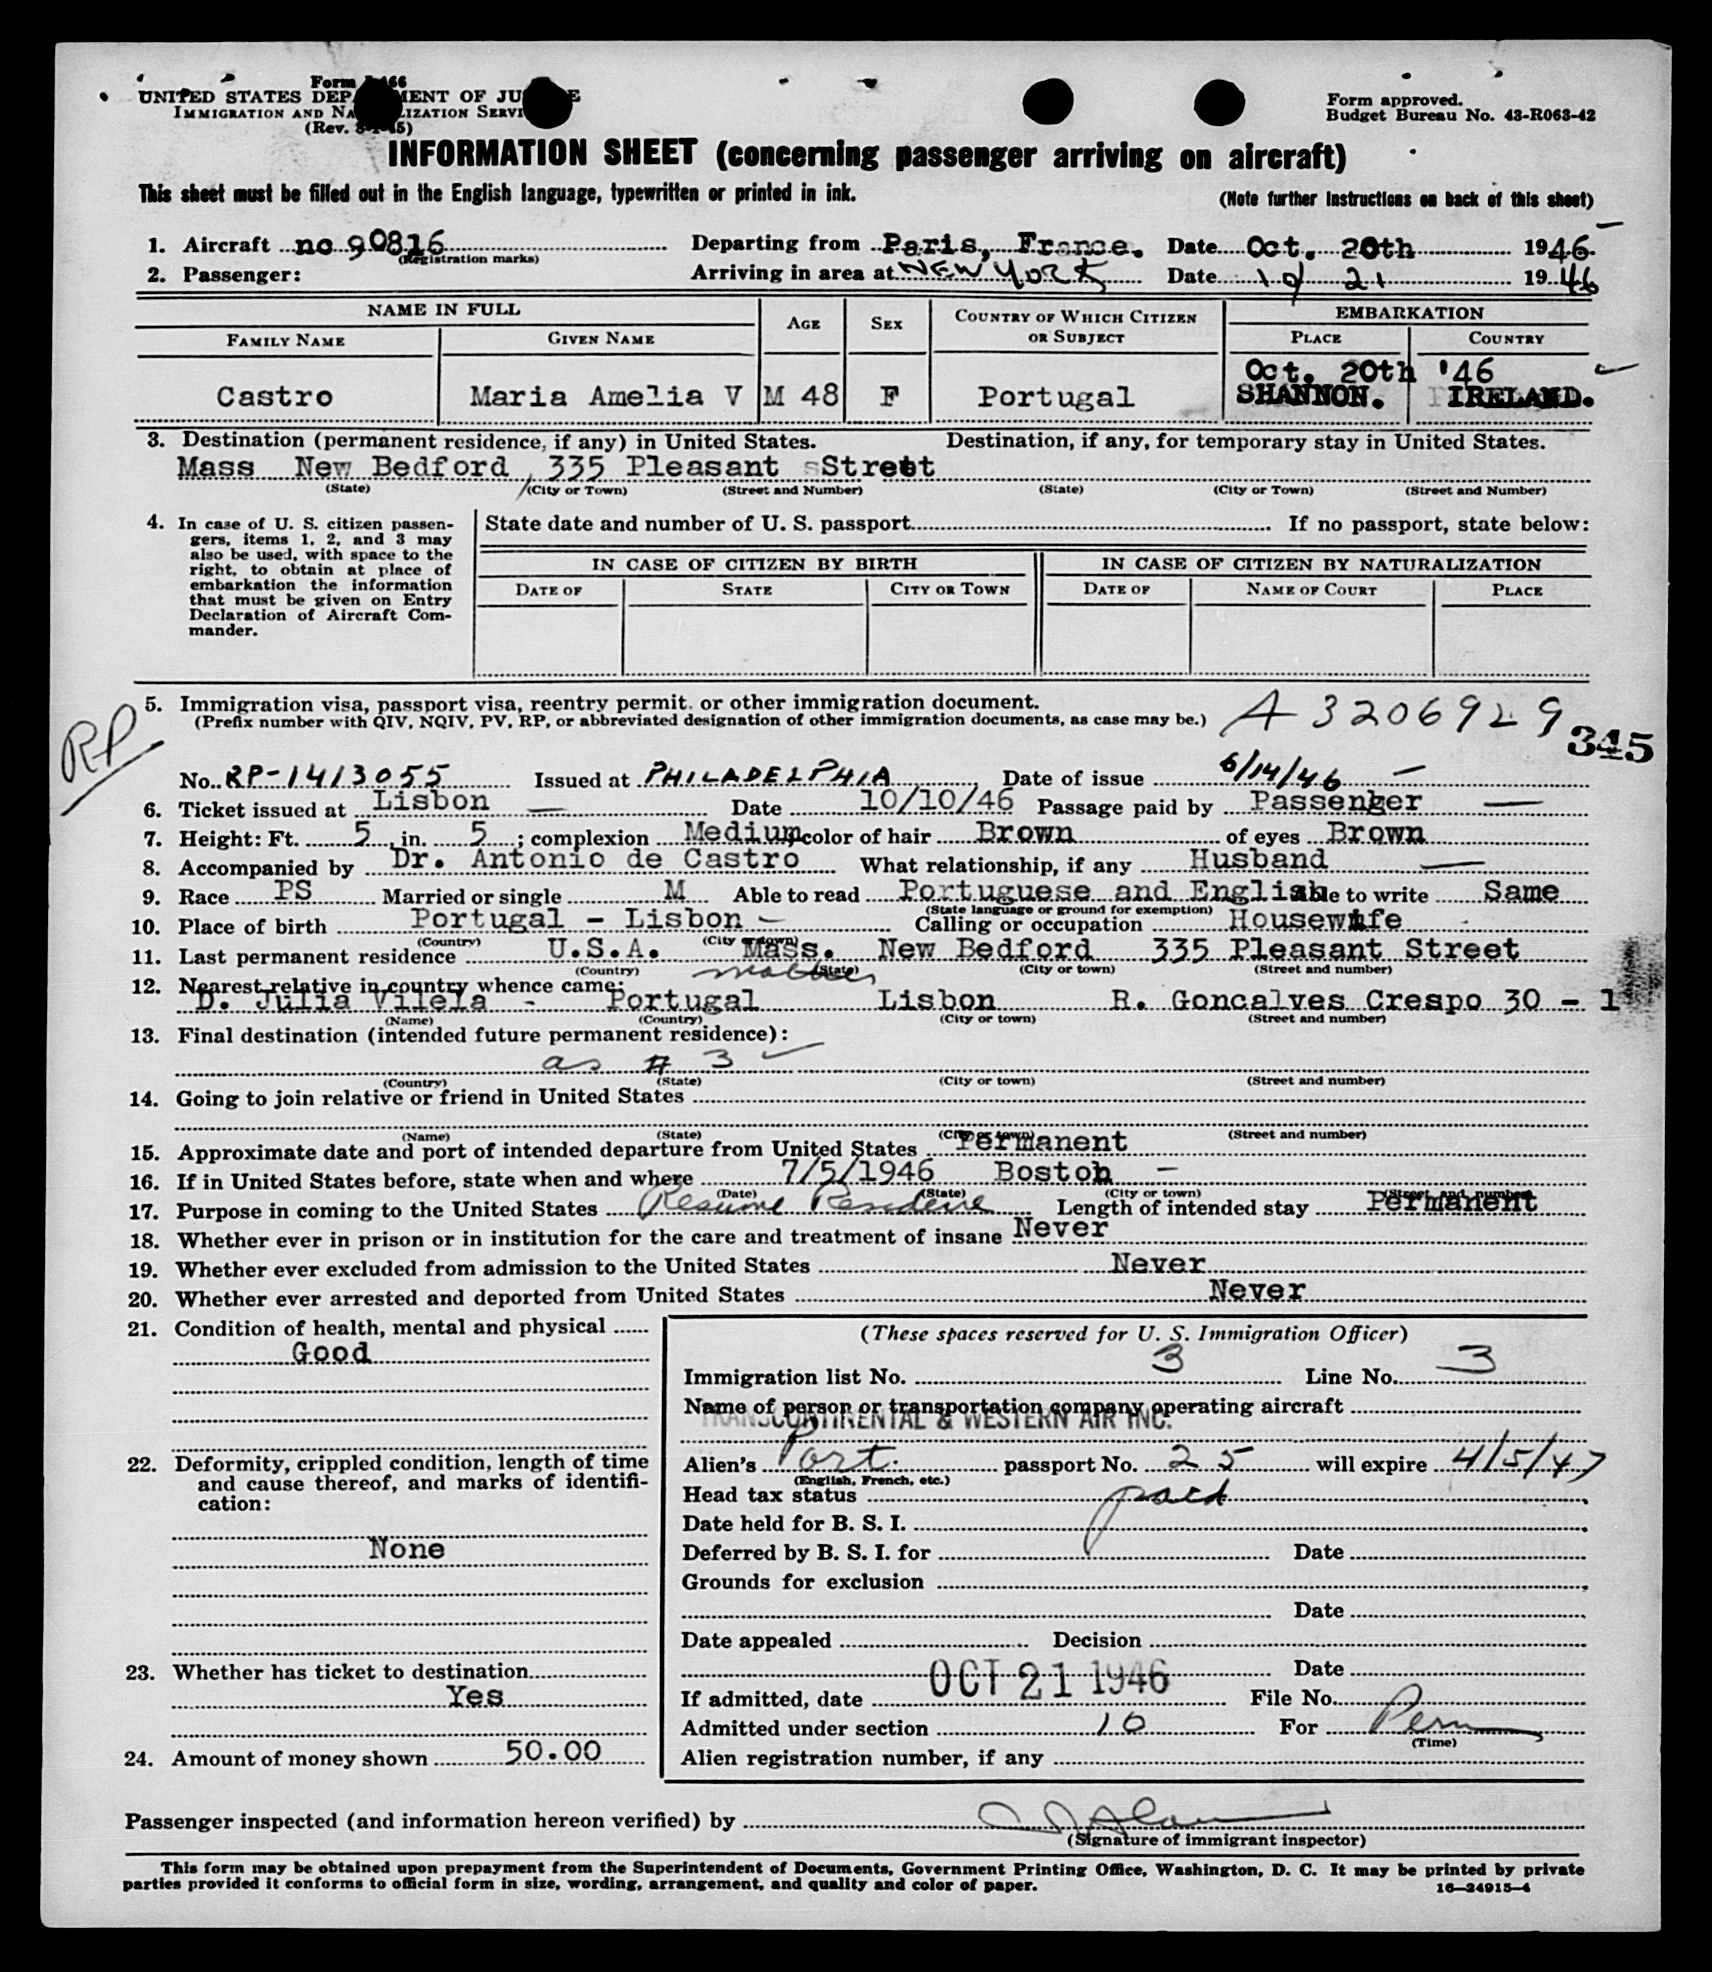 Form I-466
UNITED STATES DEPARTMENT OF JUSTICE
IMMIGRATION AND NATURALIZATION SERVICE
(Rev. 8-1-45)
Form approved.
Budget Bureau No. 43-R063-42
INFORMATION SHEET (concerning passenger arriving on aircraft)
This sheet must be filled out in the English language, typewritten or printed in ink.
(Note further instructions on back of this sheet)
1. Aircraft nc 90816 Departing from Paris, France. Date Oct. 20th 1946.
(Registration marks)
2. Passenger: Arriving in area at NEW YORK Date 10/21 1946
NAME IN FULL AGE SEX COUNTRY OF WHICH CITIZEN OR SUBJECT EMBARKATION
FAMILY NAME GIVEN NAME PLACE COUNTRY
Oct. 20th '46
Castro Maria Amelia V M 48 F Portugal SHANNON. IRELAND.
3. Destination (permanent residence, if any) in United States. Destination, if any, for temporary stay in United States.
Mass New Bedford 335 Pleasant Street
(State) (City or Town) (Street and Number) (State) (City or Town) (Street and Number)
4. In case of U. S. citizen passen-
gers, items 1, 2, and 3 may
also be used, with space to the
right, to obtain at place of
embarkation the information
that must be given on Entry
Declaration of Aircraft Com-
mander.
State date and number of U. S. passport If no passport, state below:
IN CASE OF CITIZEN BY BIRTH IN CASE OF CITIZEN BY NATURALIZATION
DATE OF STATE CITY OR TOWN DATE OF NAME OF COURT PLACE
5. Immigration visa, passport visa, reentry permit or other immigration document.
(Prefix number with QIV, NQIV, PV, RP, or abbreviated designation of other immigration documents, as case may be.)
A 3206929
345
RP
No. RP-1413055 Issued at PHILADELPHIA Date of issue 6/14/46
6. Ticket issued at Lisbon Date 10/10/46 Passage paid by Passenger
7. Height: Ft. 5, in. 5; complexion Medium, color of hair Brown of eyes Brown
8. Accompanied by Dr. Antonio de Castro What relationship, if any Husband
9. Race PS Married or single M Able to read Portuguese and English able to write Same
(State language or ground for exemption)
10. Place of birth Portugal - Lisbon Calling or occupation Housewife
(Country) (City or town)
11. Last permanent residence U.S.A. Mass. New Bedford 335 Pleasant Street
(Country) (State) (City or town) (Street and number)
12. Nearest relative in country whence came: mother
D. Julia Vilela - Portugal Lisbon R. Goncalves Crespo 30 - 1
(Name) (Country) (City or town) (Street and number)
13. Final destination (intended future permanent residence):
as # 3
(Country) (State) (City or town) (Street and number)
14. Going to join relative or friend in United States
(Name) (State) (City or town) (Street and number)
15. Approximate date and port of intended departure from United States Permanent
16. If in United States before, state when and where 7/5/1946 Boston -
(Date) (State) (City or town) (Street and number)
17. Purpose in coming to the United States Resume Residence Length of intended stay Permanent
18. Whether ever in prison or in institution for the care and treatment of insane Never
19. Whether ever excluded from admission to the United States Never
20. Whether ever arrested and deported from United States Never
21. Condition of health, mental and physical
Good
22. Deformity, crippled condition, length of time
and cause thereof, and marks of identifi-
cation:
None
23. Whether has ticket to destination
Yes
24. Amount of money shown 50.00
(These spaces reserved for U. S. Immigration Officer)
Immigration list No. 3 Line No. 3
Name of person or transportation company operating aircraft
TRANSCONTINENTAL & WESTERN AIR INC.
Alien's Port. passport No. 25 will expire 4/5/47
(English, French, etc.)
Head tax status paid
Date held for B. S. I.
Deferred by B. S. I. for Date
Grounds for exclusion
Date
Date appealed Decision
Date
If admitted, date OCT 21 1946 File No.
Admitted under section 10 For Perm
(Time)
Alien registration number, if any
Passenger inspected (and information hereon verified) by
(Signature of immigrant inspector)
This form may be obtained upon prepayment from the Superintendent of Documents, Government Printing Office, Washington, D. C. It may be printed by private
parties provided it conforms to official form in size, wording, arrangement, and quality and color of paper.
16—24915-4